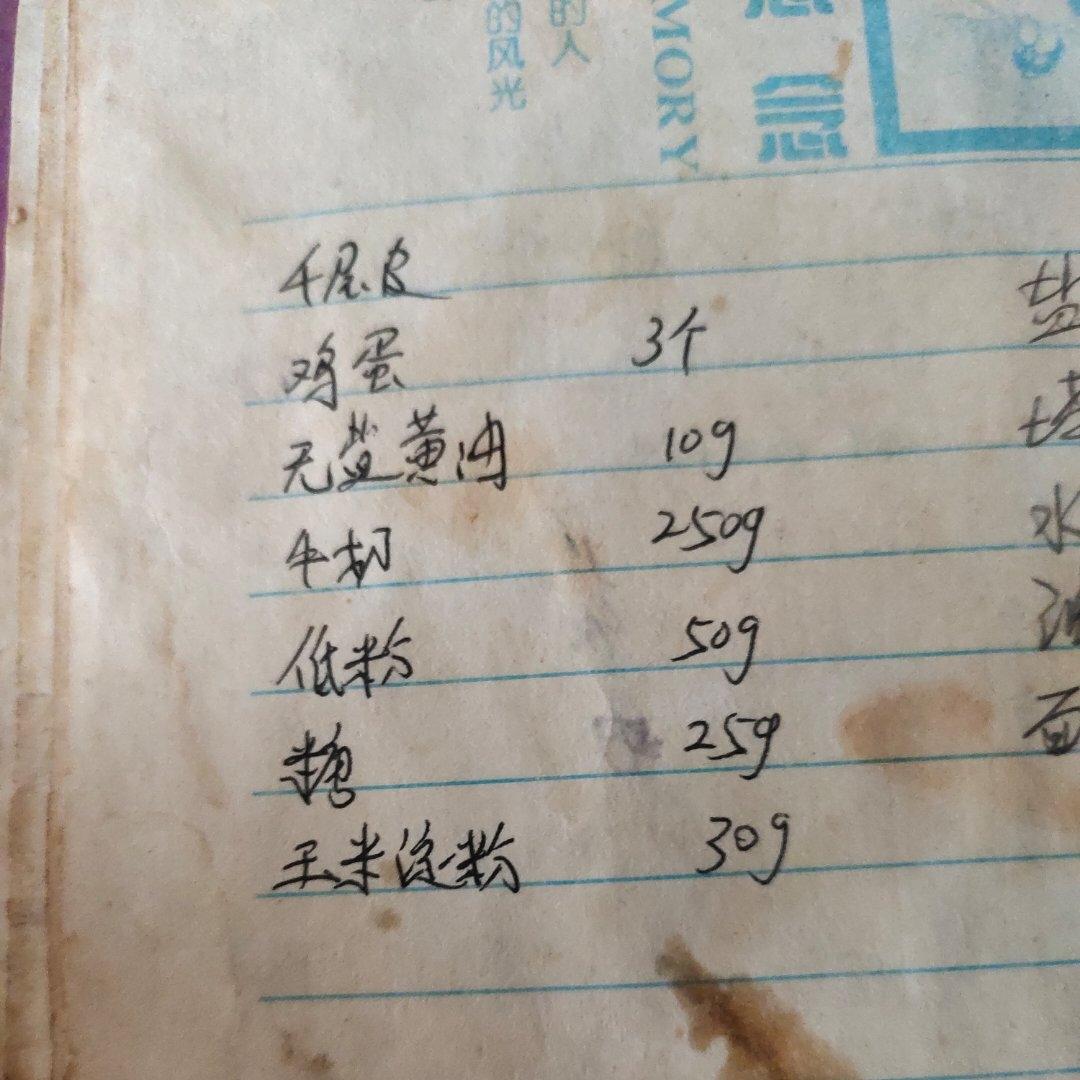 的人
的风光
MORY
急
千层皮
鸡蛋 3个
无盐黄油 10g
牛奶 250g
低粉 50g
糖 25g
玉米淀粉 30g
盐
塔
水
油
面